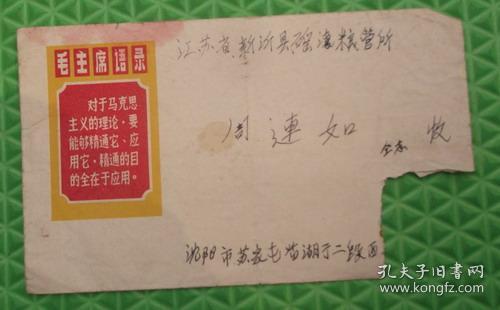 毛主席语录
对于马克思
主义的理论，要
能够精通它、应
用它，精通的目
的全在于应用。
江苏省新沂县瑶湾粮管所
周連如 收
沈阳市苏家屯
孔夫子旧书网
www.kongfz.com